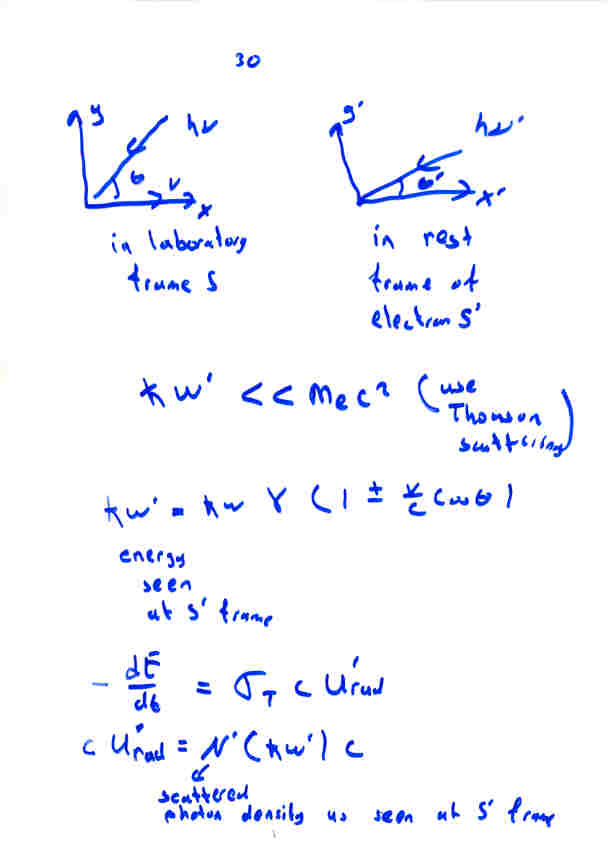 30
y hν
θ v
x
y' hν'
θ'
x'
in laboratory
frame S
in rest
frame of
electron S'
ħω' << mec² (use
Thomson
scattering)
ħω' = ħω γ (1 ± v/c cos θ)
energy
seen
at S' frame
- dE/dt = σT c U'rad
c U'rad = N' (ħω') c
scattered
photon density as seen at S' frame